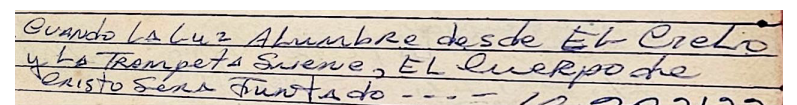 Cuando La Luz Alumbre desde EL Cielo
y La Trompeta Suene, EL Cuerpo de
Cristo Sera Juntado ----